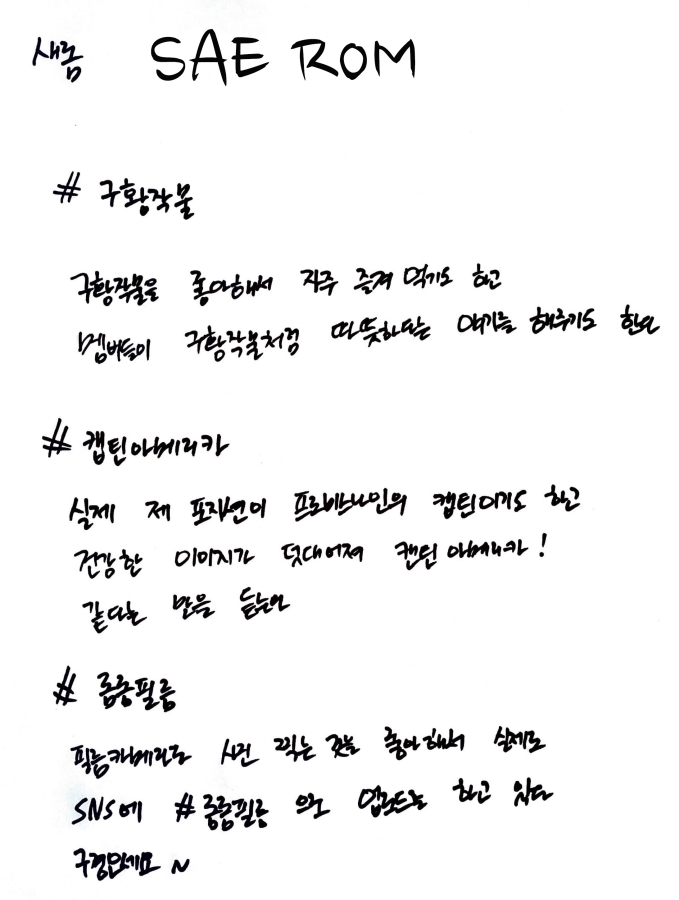 새롬 SAE ROM
# 구황작물
구황작물을 좋아해서 자주 즐겨 먹기도 하고
멤버들이 구황작물처럼 따뜻하다는 얘기를 해주기도 한다
# 캡틴아메리카
실제 제 포지션이 프로미스나인의 캡틴이기도 하고
건강한 이미지가 덧대어져 캡틴 아메리카!
같다는 말을 듣는다
# 롬롬필름
필름카메라로 사진 찍는 것을 좋아해서 실제로
SNS에 #롬롬필름 으로 업로드를 하고 있다
구경오세요~